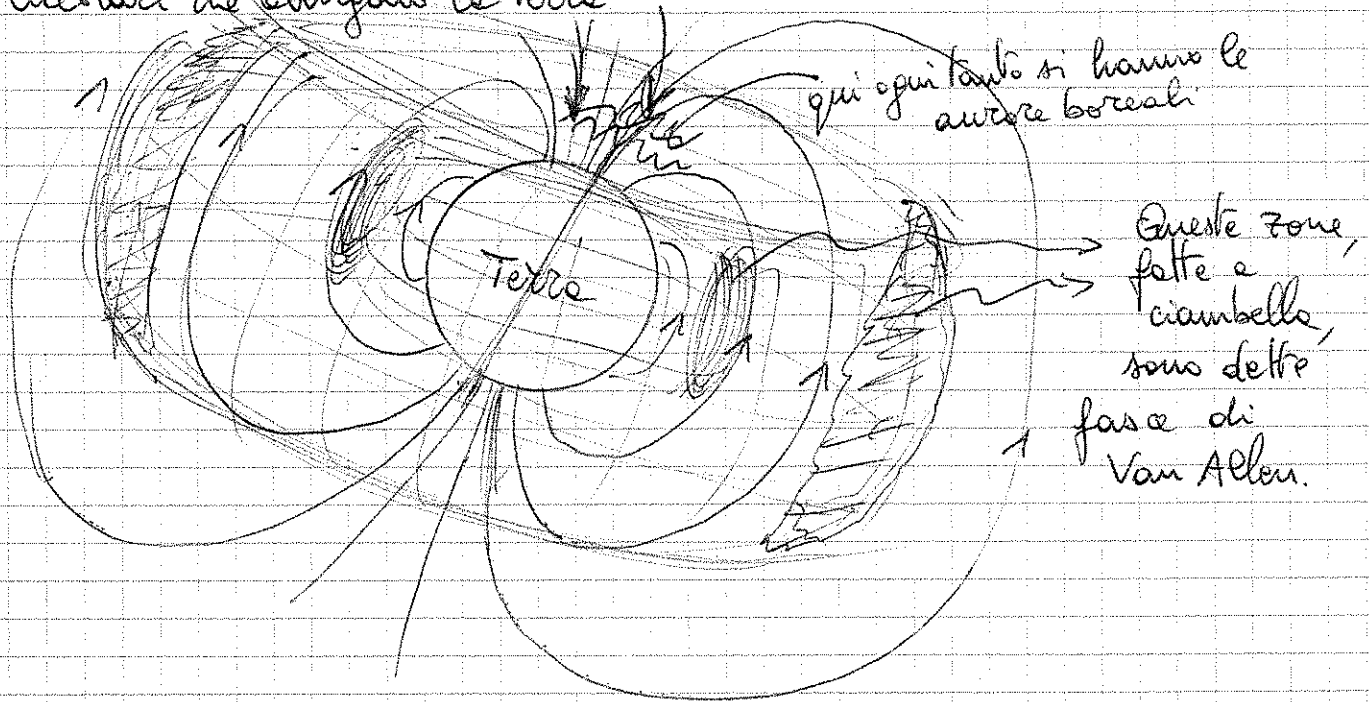 che la Terra
qui ogni tanto si hanno le
aurore boreali
Terra
Queste zone,
fatte a
ciambella,
sono dette
fasce di
Van Allen.